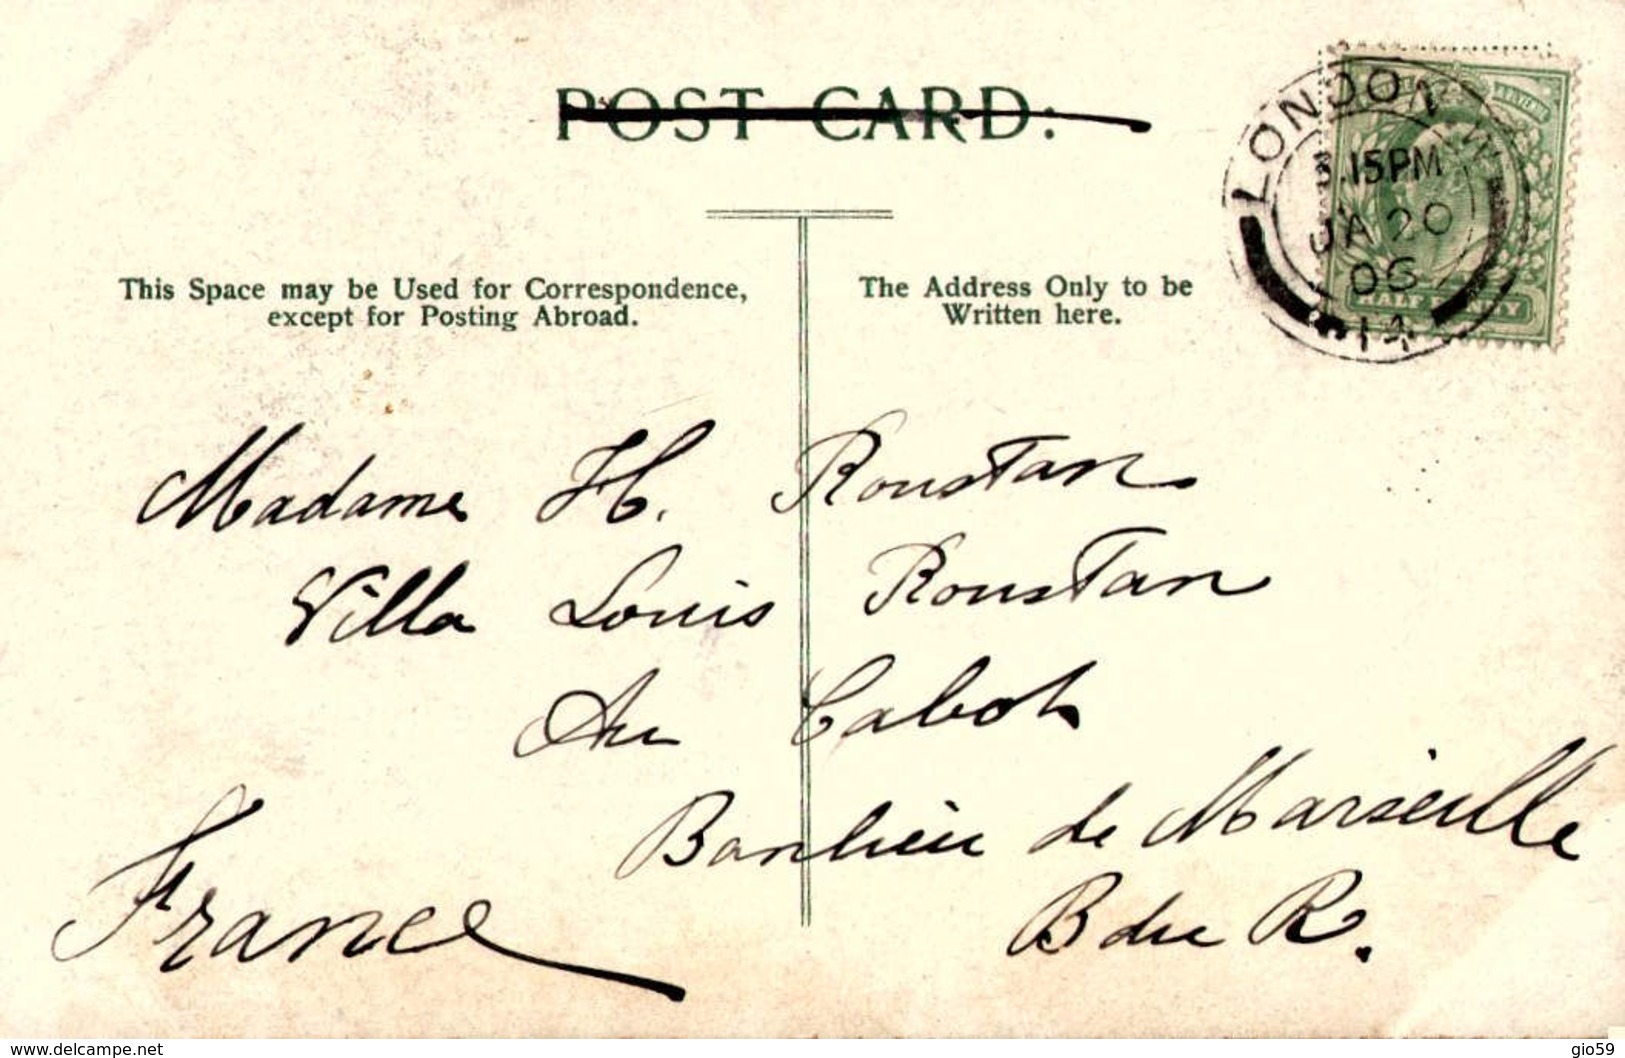 POST CARD:
LONDON W
3.15PM
JA 20
06
14
HALF PENNY
This Space may be Used for Correspondence,
except for Posting Abroad.
The Address Only to be
Written here.
Madame H. Roustan
Villa Louis Roustan
Au Cabot
Banlieu de Marseille
B du R.
France
www.delcampe.net
gio59